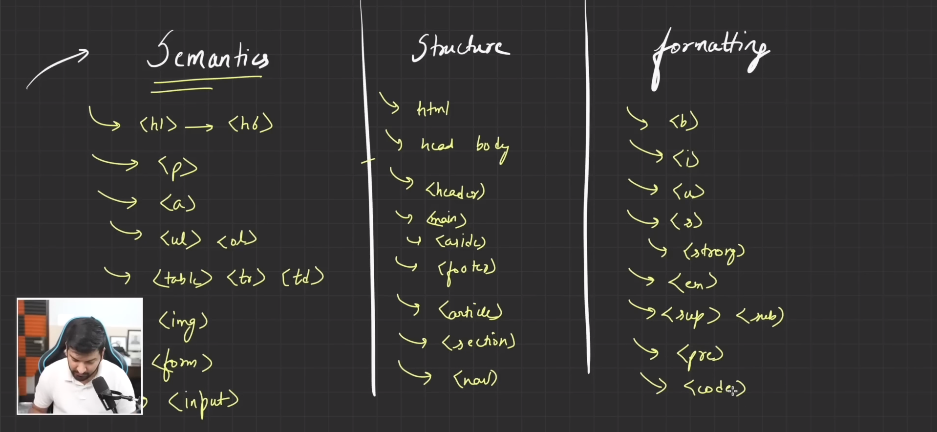 Semantics
<h1> → <h6>
<p>
<a>
<ul> <ol>
<table> <tr> <td>
<img>
<form>
<input>
Structure
html
head body
<header>
<main>
<aside>
<footer>
<article>
<section>
<nav>
formatting
<b>
<i>
<u>
<s>
<strong>
<em>
<sup> <sub>
<pre>
<code>